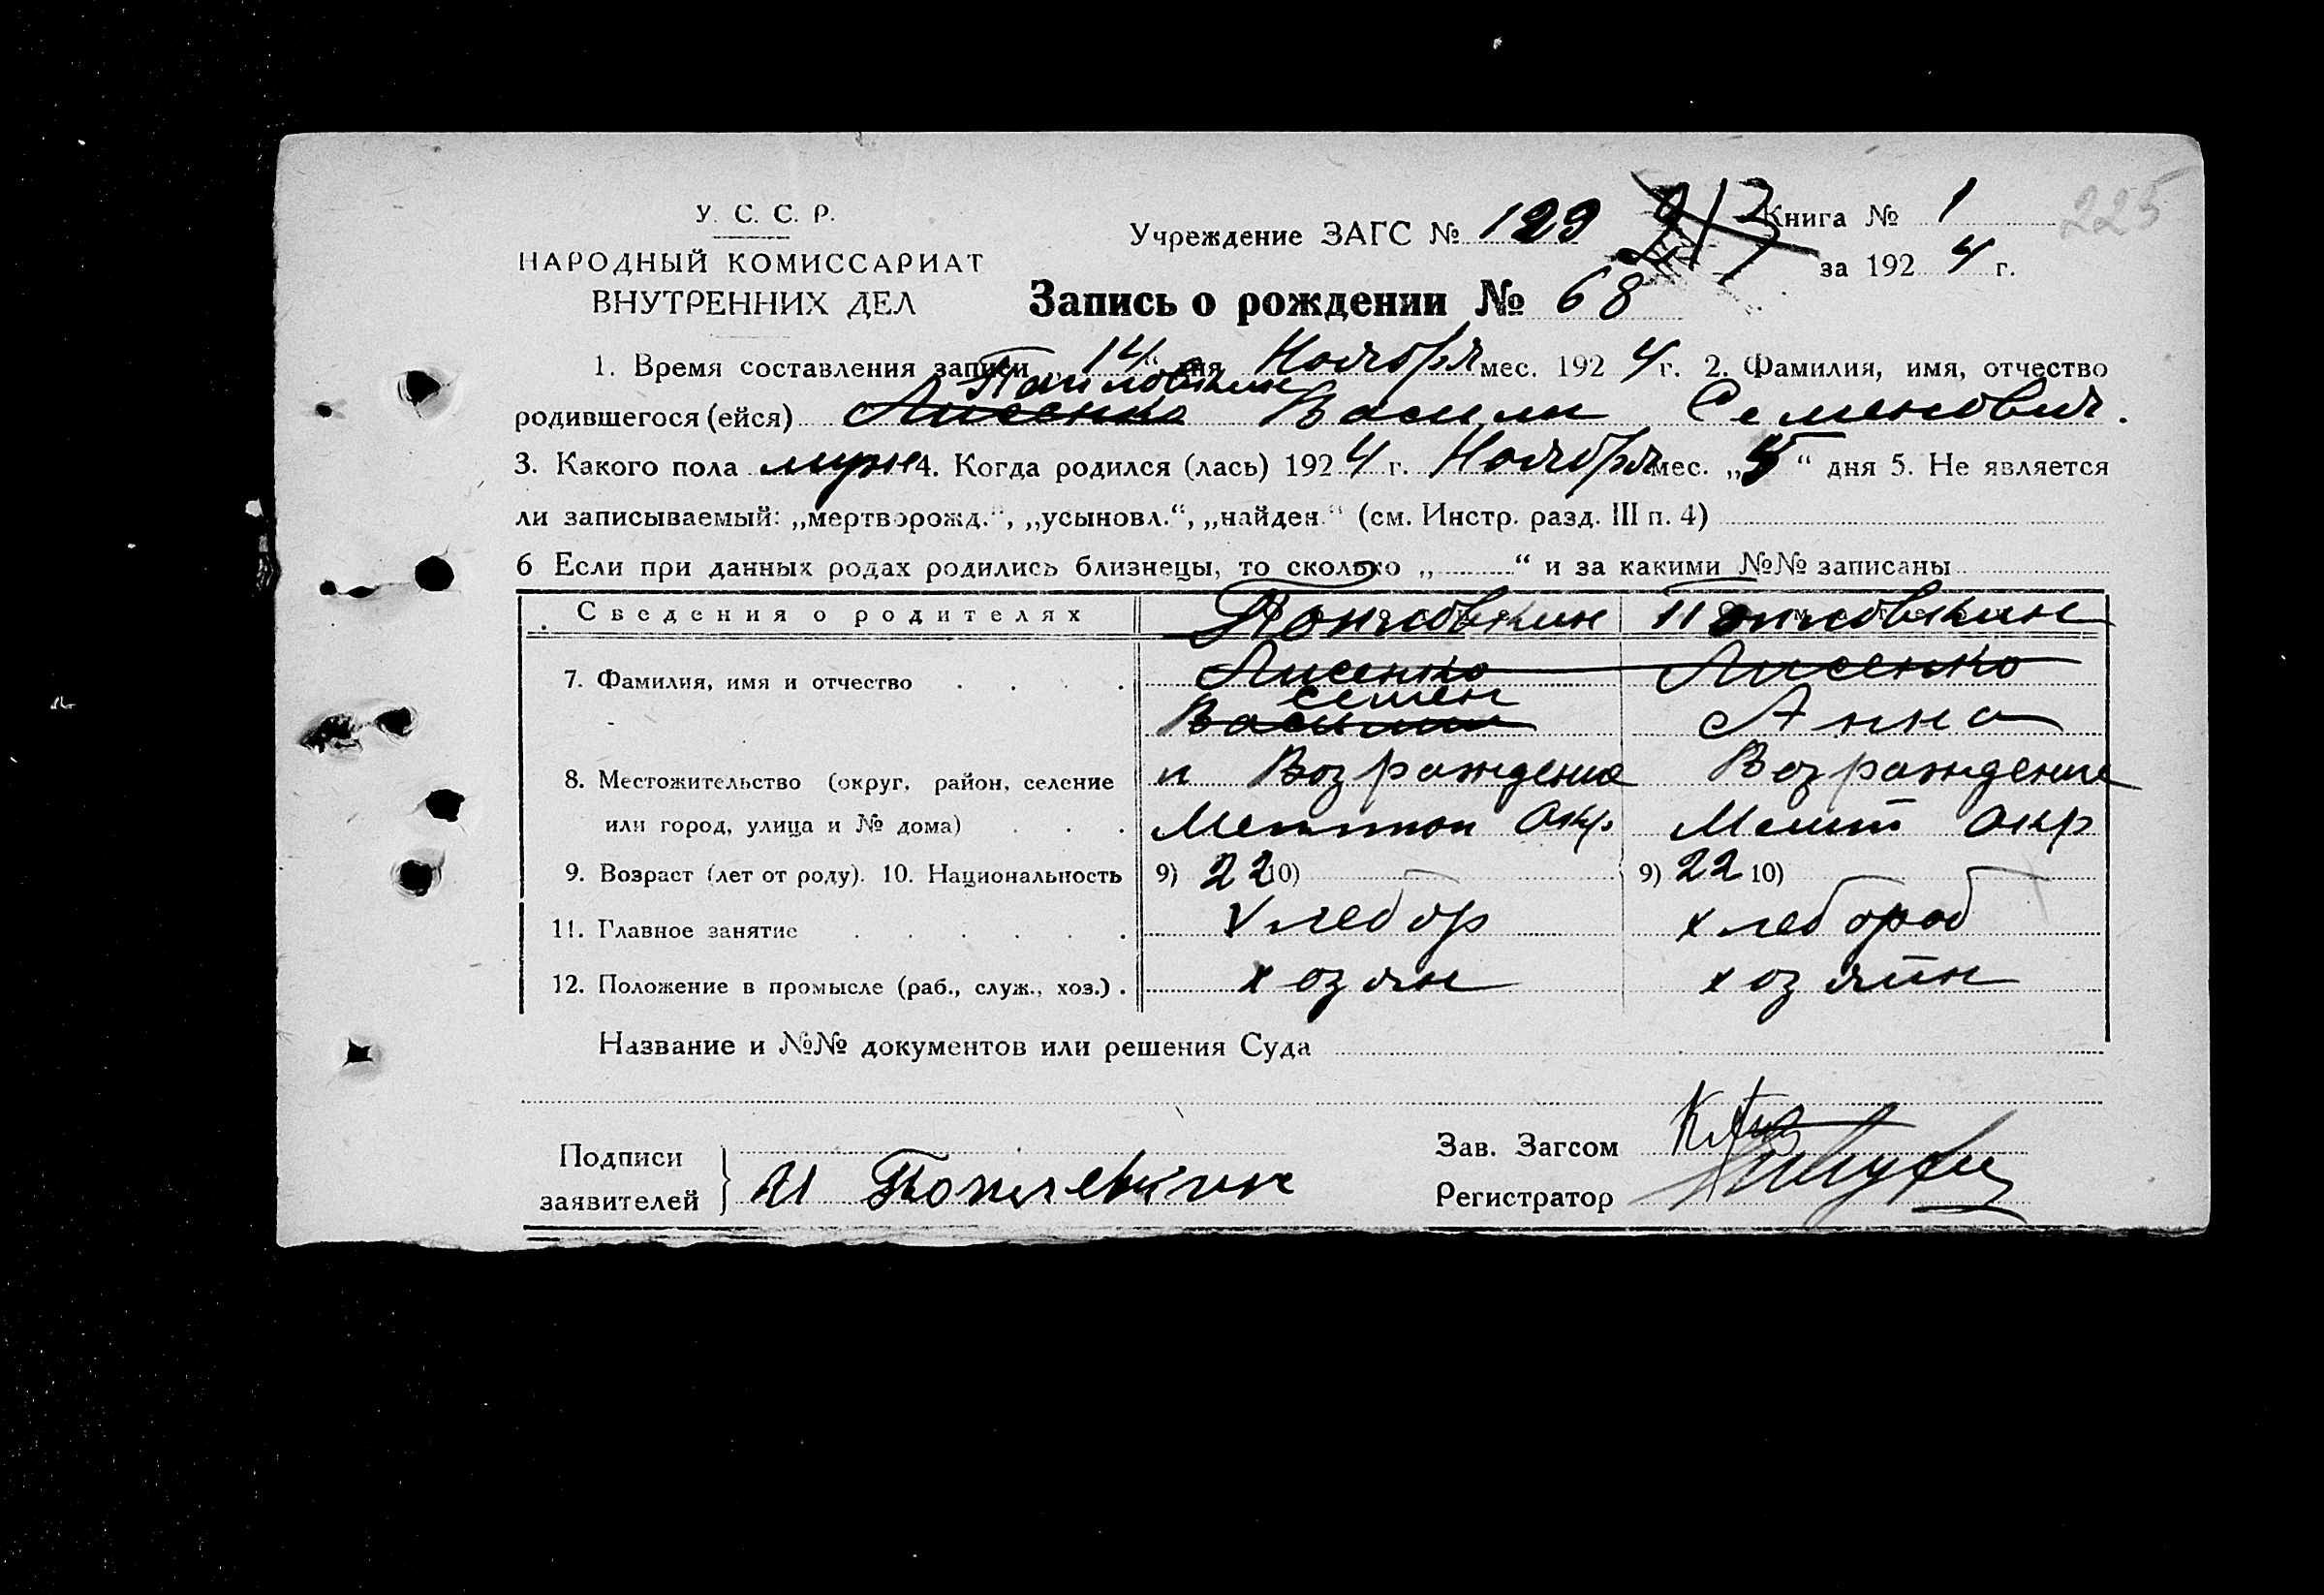 У. С. С. Р.
НАРОДНЫЙ КОМИССАРИАТ
ВНУТРЕННИХ ДЕЛ
Учреждение ЗАГС № 129
Книга № 1
225
за 192 4 г.
Запись о рождении № 68
1. Время составления записи „ 14 “ дня Ноября мес. 192 4 г. 2. Фамилия, имя, отчество
родившегося (ейся) Лисенко Васили Семенович.
3. Какого пола муж 4. Когда родился (лась) 192 4 г. Ноября мес. „ 5 “ дня 5. Не является
ли записываемый: „мертворожд.“, „усыновл.“, „найден.“ (см. Инстр. разд. III п. 4)
6 Если при данных родах родились близнецы, то сколько „ “ и за какими №№ записаны
Сведения о родителях
7. Фамилия, имя и отчество Лисенко Лисенко
Семен
Васили Анна
8. Местожительство (округ, район, селение п Возраждение Возраждение
или город, улица и № дома) Окр. Мелит Окр
9. Возраст (лет от роду). 10. Национальность 9) 22 10) 9) 22 10)
11. Главное занятие хлебор хлебороб
12. Положение в промысле (раб., служ., хоз.) хозян хозяин
Название и №№ документов или решения Суда
Подписи
заявителей
Зав. Загсом
Регистратор